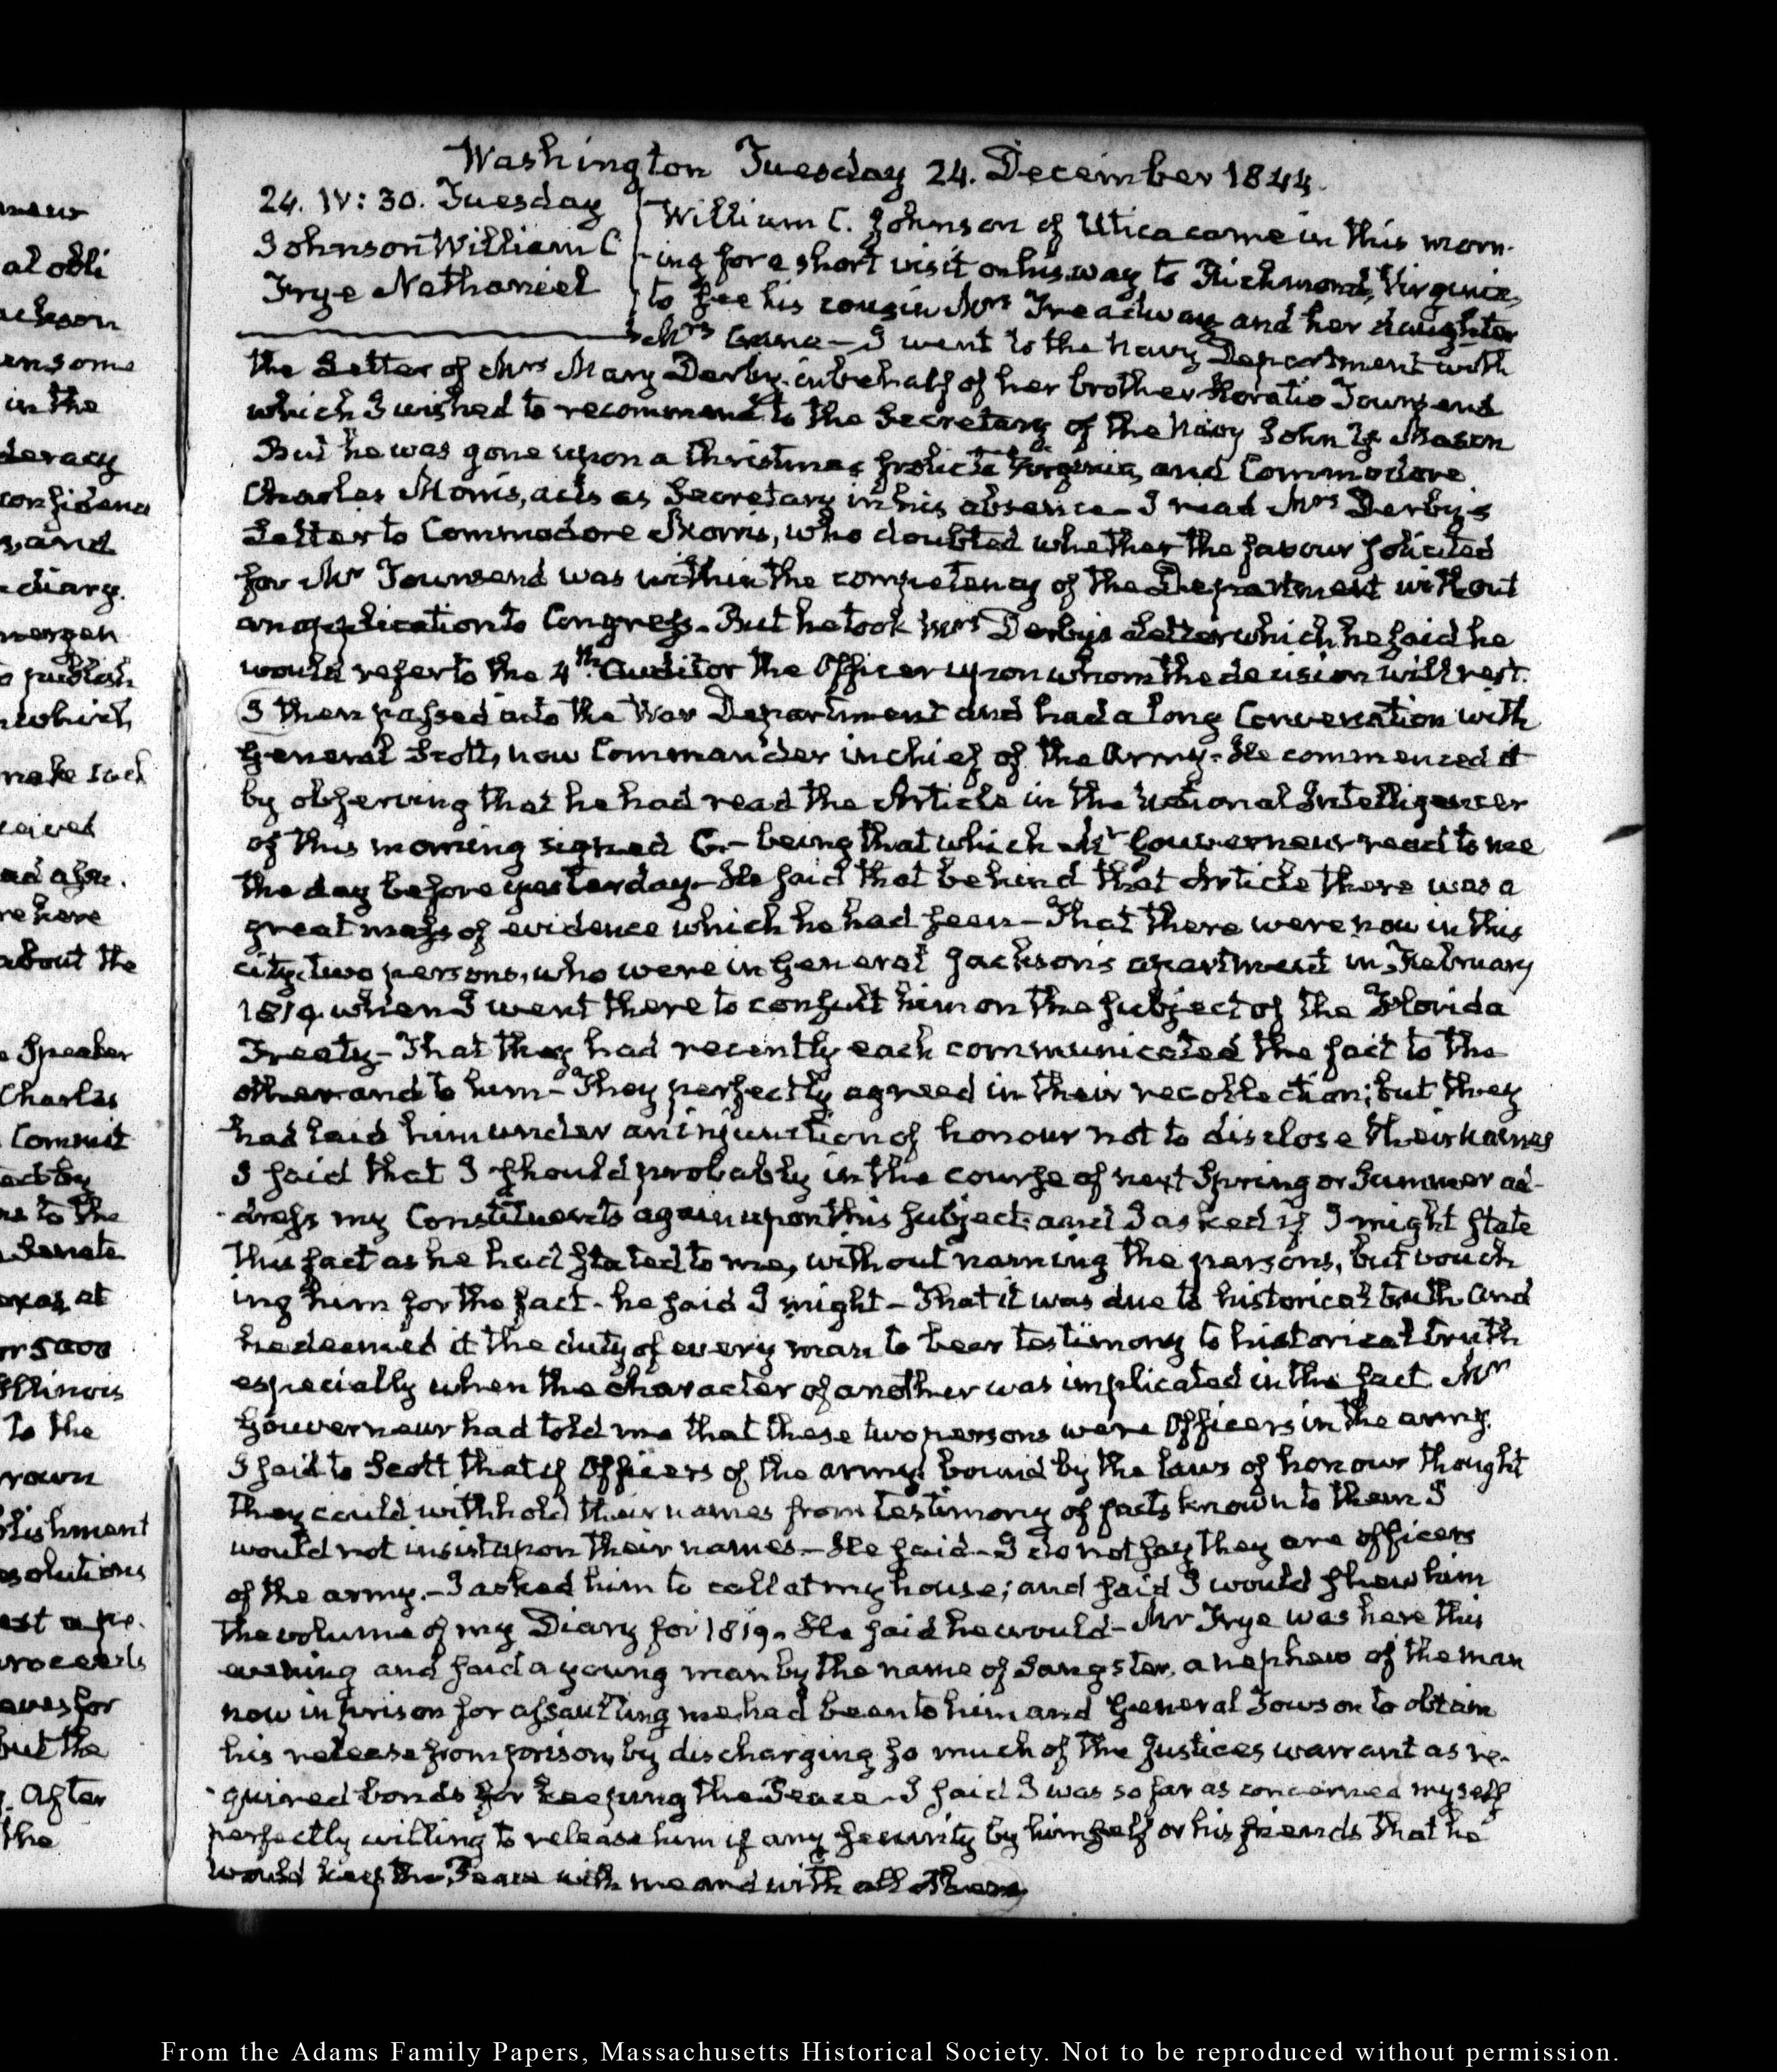 neur
al obli
ackson
en some
in the
deracy
confidence
s, and
diary.
publish
which
make such
ceived
ad also.
re here
about the
e Speaker
Charles
Commit
act by
ne to the
Senate
exas, at
or 5000
Illinois
to the
rown
blishment
esolutions
est a pe.
proceeds
eaves for
but the
. After
the
Washington Tuesday 24. December 1844.
24. IV: 30. Tuesday
Johnson William C
Frye Nathaniel
William C. Johnson of Utica came in this morn-
-ing for a short visit on his way to Richmond, Virginia,
to see his cousin Mrs Treadway and her daughter
Mrs — I went to the Navy Department with
the Letter of Mrs Mary Derby in behalf of her brother Horatio Townsend
which I wished to recommend to the Secretary of the Navy John Y. Mason
But he was gone upon a Christmas frolic to Virginia, and Commodore
Charles Morris, acts as Secretary in his absence— I read Mrs Derby's
Letter to Commodore Morris, who doubted whether the favour solicited
for Mr Townsend was within the competency of the Department without
an application to Congress. But he took Mrs Derby's Letter which he said he
would refer to the 4th Auditor the Officer upon whom the decision will rest.
I then passed into the War Department and had a long Conversation with
General Scott, now Commander in chief of the Army. He commenced it
by observing that he had read the Article in the National Intelligencer
of this morning signed G— being that which Mr Gouverneur read to me
the day before yesterday— He said that behind that Article there was a
great mass of evidence which he had seen— That there were now in this
city, two persons, who were in General Jackson's apartment in February
1819. when I went there to consult him on the subject of the Florida
Treaty— That they had recently each communicated the fact to the
other and to him— They perfectly agreed in their recollection; but they
had laid him under an injunction of honour not to disclose their names
I said that I should probably in the course of next Spring or Summer ad-
-dress my Constituents again upon this subject; and I asked if I might state
this fact as he had stated to me, without naming the persons, but vouch
ing him for the fact— he said I might— That it was due to historical truth and
he deemed it the duty of every man to bear testimony to historical truth
especially when the character of another was implicated in the fact Mr
Gouverneur had told me that these two persons were Officers in the army.
I said to Scott that if Officers of the army bound by the laws of honour thought
they could withhold their names from testimony of facts known to them I
would not insist upon their names— He said— I do not say they are officers
of the army.— I asked him to call at my house; and said I would shew him
the volume of my Diary for 1819. He said he would— Mr Frye was here this
evening and said a young man by the name of Sangster, a nephew of the man
now in prison for assaulting me, had been to him and General Towson to obtain
his release from prison, by discharging so much of the Justices warrant as re-
-quired bonds for keeping the Peace— I said I was so far as concerned myself
perfectly willing to release him if any security by himself or his friends that he
would keep the Peace with me and with all others
From the Adams Family Papers, Massachusetts Historical Society. Not to be reproduced without permission.